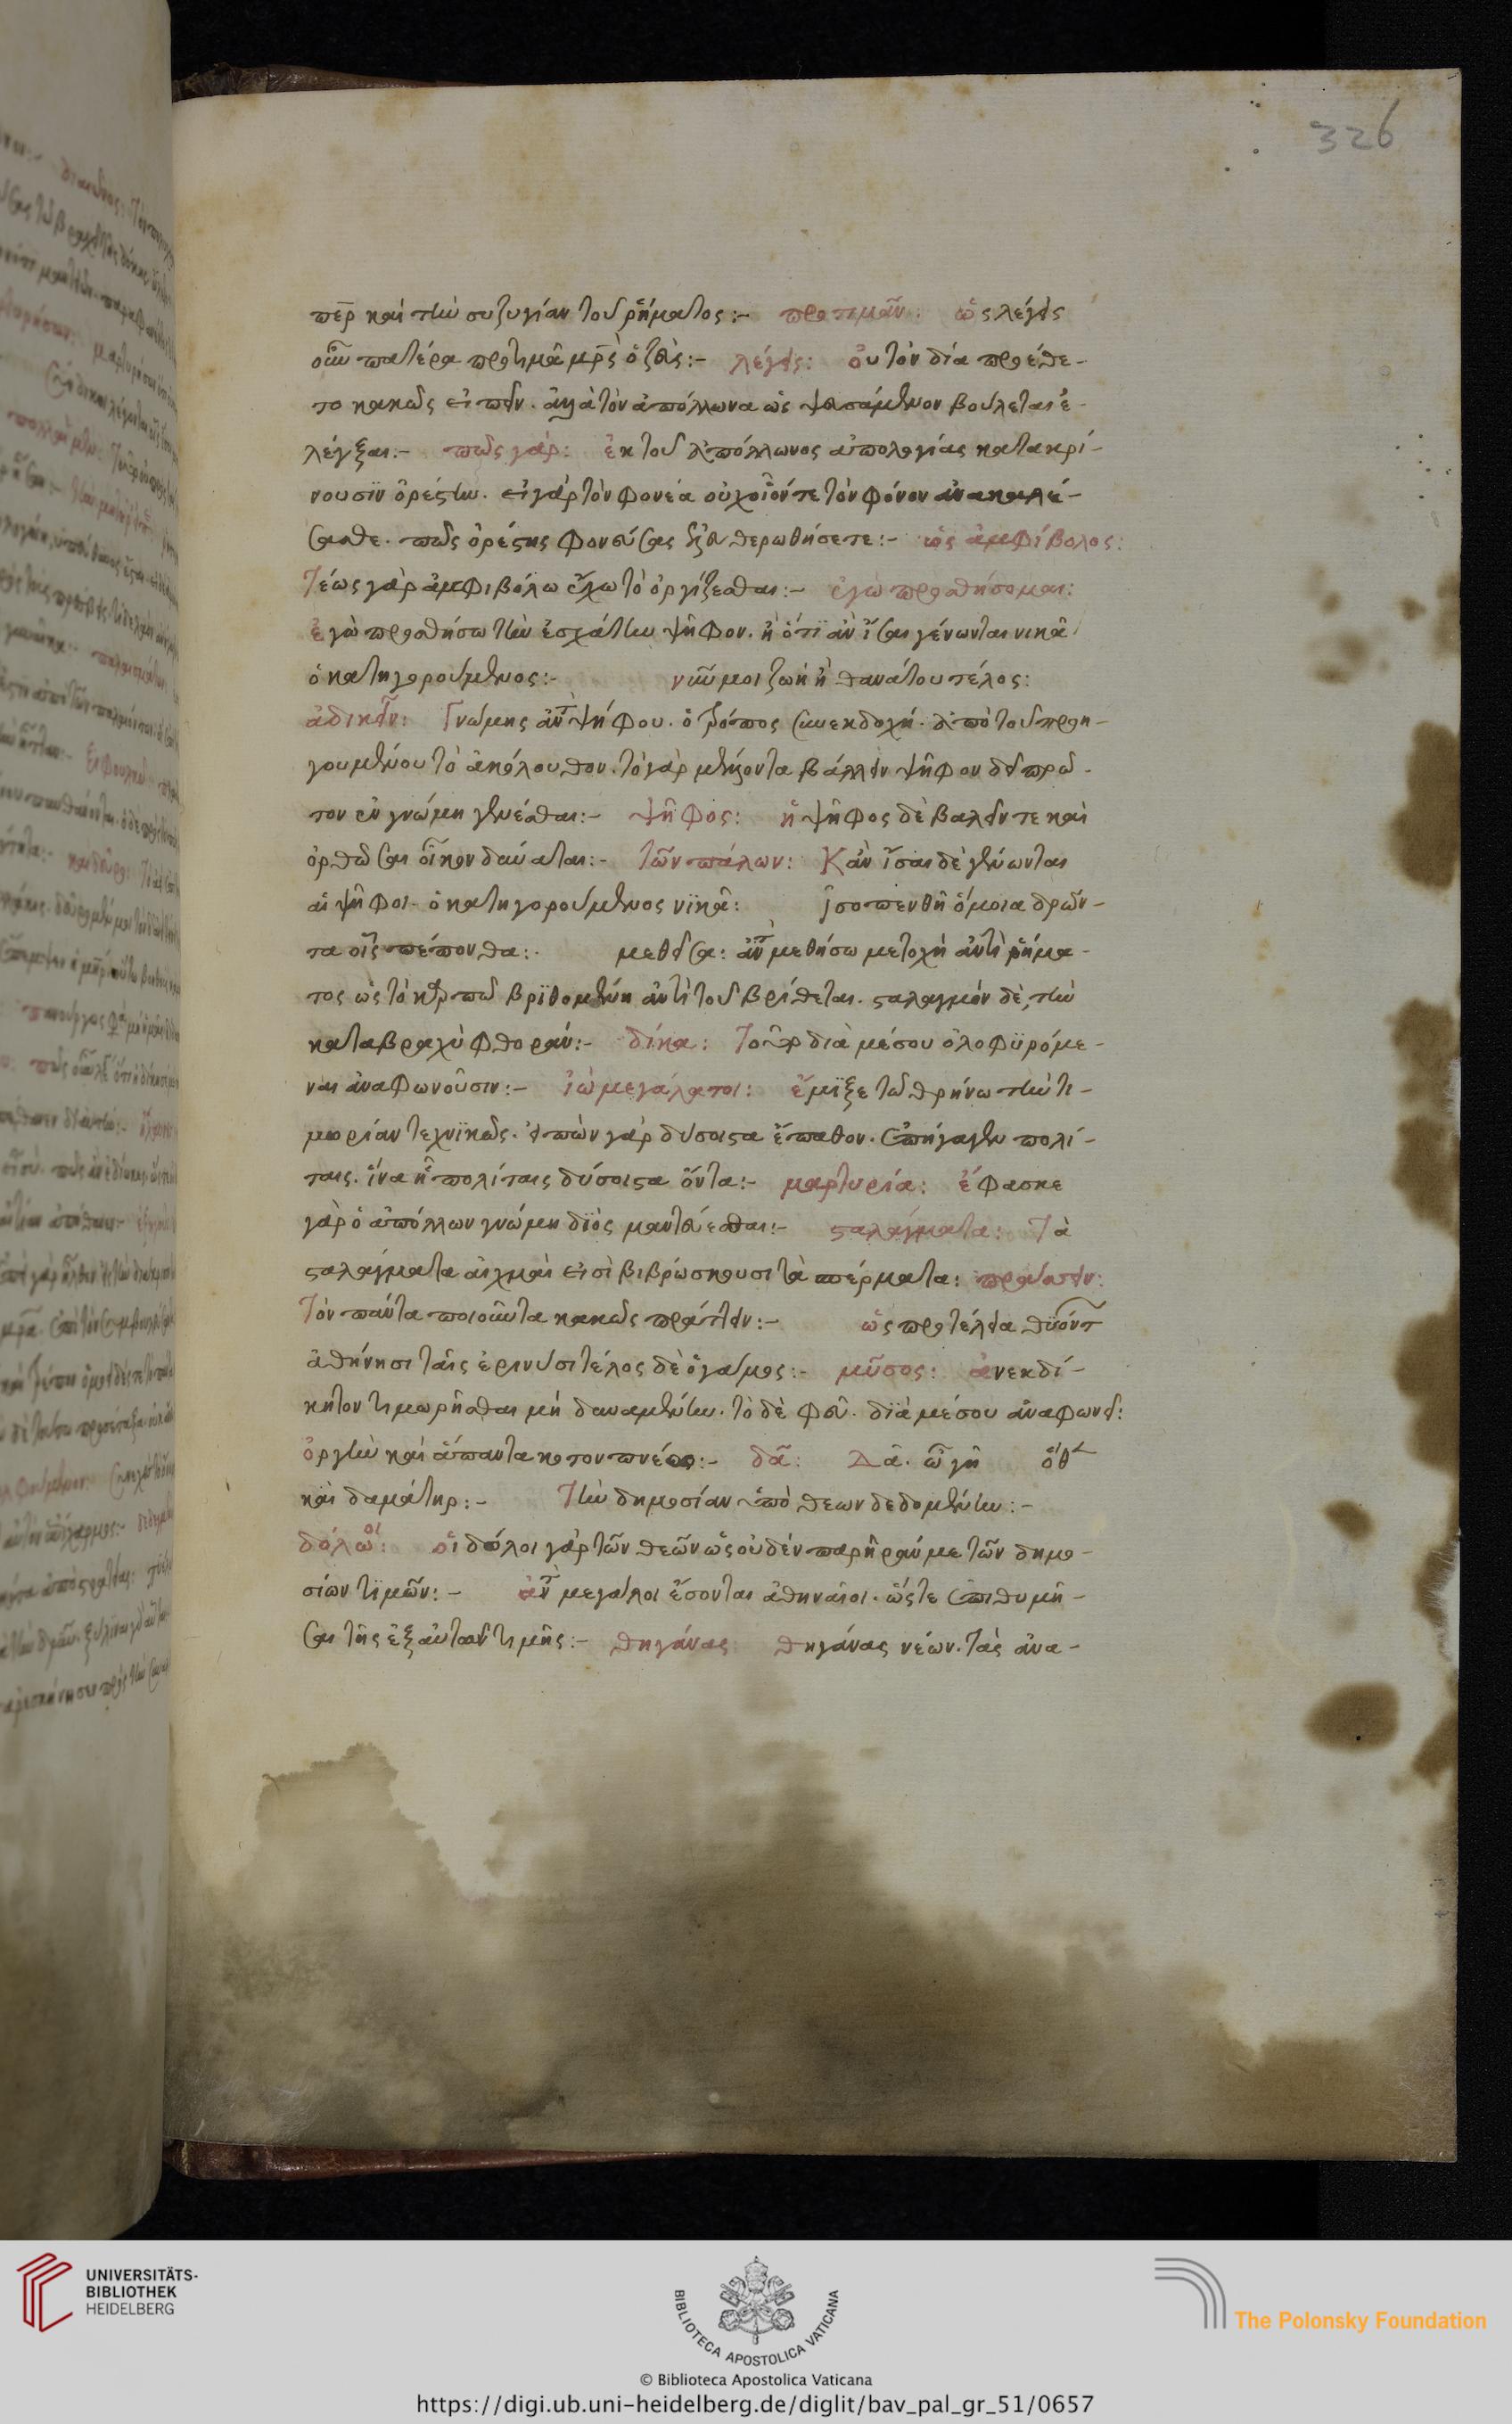 326
περ καὶ τὴν συζυγίαν τοῦ ῥήματος:- προτιμᾶν: ὡς λέγεις
οὖν πατέρα προτιμᾶ μρς ὁ ζεὺς:- λέγεις: οὐ τὸν δία προέθε-
το κακῶς εἰπεῖν. ἀλλὰ τὸν ἀπόλλωνα ὡς ψευσάμενον βούλεται ἐ-
λέγξαι:- πῶς γάρ: ἐκ τοῦ ἀπόλλωνος ἀπολογίας κατακρί-
νουσϊν ὀρέστην. εἰ γὰρ τὸν φονέα οὐχ οἷόν τε τὸν φόνον ἀνακαλέ-
σασθε. πῶς ὀρέστης φονεύσας ἐλευθερωθήσετε:- ὡς ἀμφίβολος:
Τέως γὰρ ἀμφιβόλω ἔχω τὸ ὀργίζεσθαι:- ἐγὼ προσθήσομαι:
ἐγὼ προσθήσω τὴν ἐσχάτην ψῆφον. ἢ ὅτϊ ἂν ἴσαι γένωνται νικᾶ
ὁ κατηγορούμενος:- νῦν μοι ζωὴ ἢ θανάτου τέλος:
ἀδικεῖν: Γνώμης ἀντὶ ψήφου. ὁ τρόπος συνεκδοχή. ἀπὸ τοῦ προη-
γουμένου τὸ ἀκόλουθον. τὸ γὰρ μέλλοντα βάλλειν ψῆφον δεῖ πρῶ-
τον ἐν γνώμη γενέσθαι:- ψῆφος: ἡ ψῆφος δὲ βαλεῖν τε καὶ
ὀρθῶσαι οἶκον δύναται:- τῶν πάλων: Κἂν ἴσαι δὲ γένωνται
αἱ ψῆφοι. ὁ κατηγορούμενος νϊκᾶ: ἰσοπενθῆ ὅμοια δρῶν-
τα οἷς πέπονθα:. μεθεῖσα: ἀντὶ μεθήσω μετοχὴ ἀντὶ ῥήμα-
τος ὡς τὸ καρπῶ βρϊθομένη ἀντὶ τοῦ βρίθεται. σταλαγμὸν δὲ, τὴν
κατα βραχὺ φθοράν:- δίκα: Τοῦτο διὰ μέσου ὀλοφϋρόμε-
ναι ἀναφωνοῦσιν:- ἰὼ μεγάλατοι: ἔμϊξε τῶ θρήνω τὴν τι-
μωρίαν τεχνϊκῶς. εἰπὼν γὰρ δύσοιστα ἔπαθον. ἐπήγαγεν πολί-
ταις. ἵνα ἦ πολίταις δύσοιστα ὄντα:- μαρτυρία: ἔφασκε
γὰρ ὁ ἀπόλλων γνώμη δϊὸς μαντεύεσθαι:- σταλάγματα: Τὰ
σταλάγματα αἰχμαὶ εἰσὶ βιβρώσκουσι τὰ σπέρματα: πράσσειν:
Τὸν πάντα ποιοῦντα κακῶς πράττειν:- ὡς προτέλεια θϋόντ
ἀθήνησι ταῖς ἐρινύσι τέλος δὲ ὁ γάμος:- μῦσος: ἀνεκδί-
κητον τιμωρῆσθαι μὴ δυναμένην. τὸ δὲ φεῦ. δϊὰ μέσου ἀναφωνεῖ:
ὀργὴν καὶ ἅπαντα κοτον πνέω:- δᾶ: Δᾶ. ὦ γῆ ὅθεν
καὶ δαμάτηρ:- Τὴν δημοσίαν ὑπὸ θεων δεδομένην:-
δόλωοι: οἱ δόλοι γὰρ τῶν θεῶν ὡς οὐδὲν παρῆραν με τῶν δημο-
σίων τϊμῶν:- ἀντὶ μεγάλοι ἔσονται ἀθηναῖοι. ὥστε ἐπιθυμῆ-
σαι τῆς ἐξ αὐτῶν τιμῆς:- θηγάνας θηγάνας νέων. τὰς ἀνα-
UNIVERSITÄTS-
BIBLIOTHEK
HEIDELBERG
BIBLIOTECA APOSTOLICA VATICANA
The Polonsky Foundation
© Biblioteca Apostolica Vaticana
https://digi.ub.uni-heidelberg.de/diglit/bav_pal_gr_51/0657